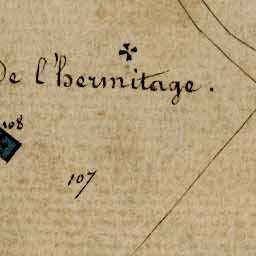 De l'hermitage.
108
107